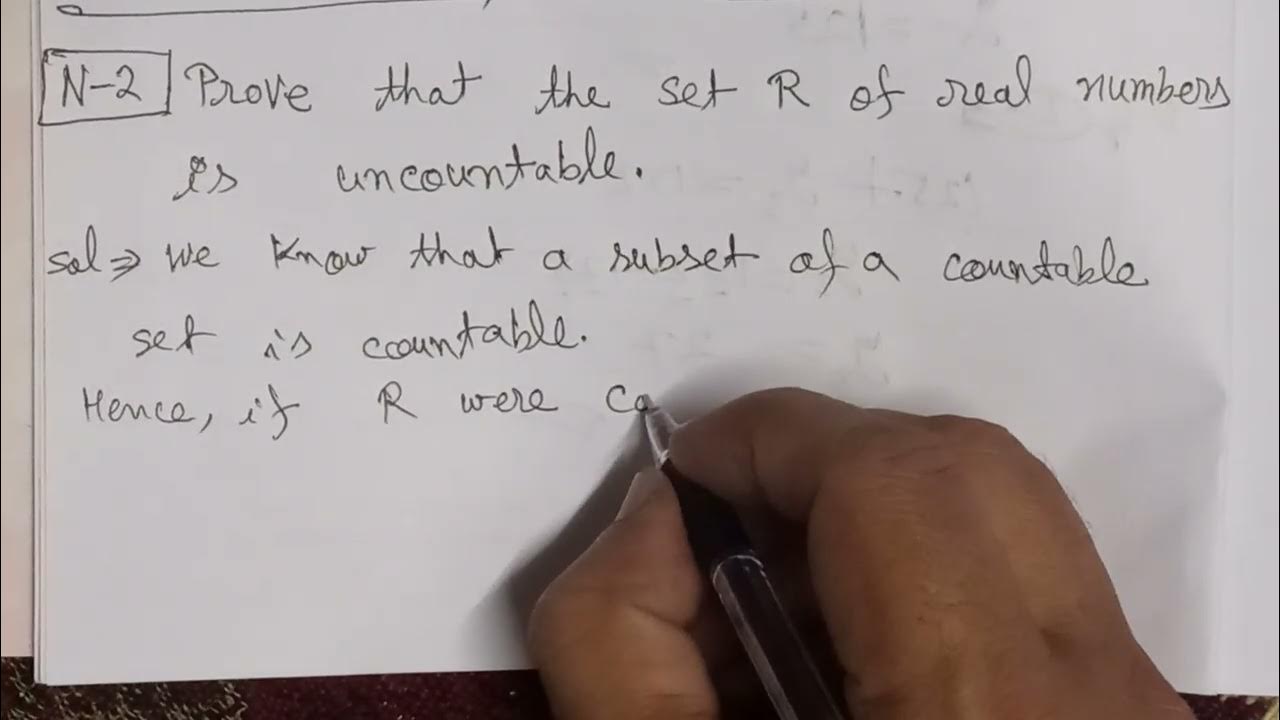 N-2 Prove that the set R of real numbers
is uncountable.
sol⇒ we know that a subset of a countable
set is countable.
Hence, if R were co